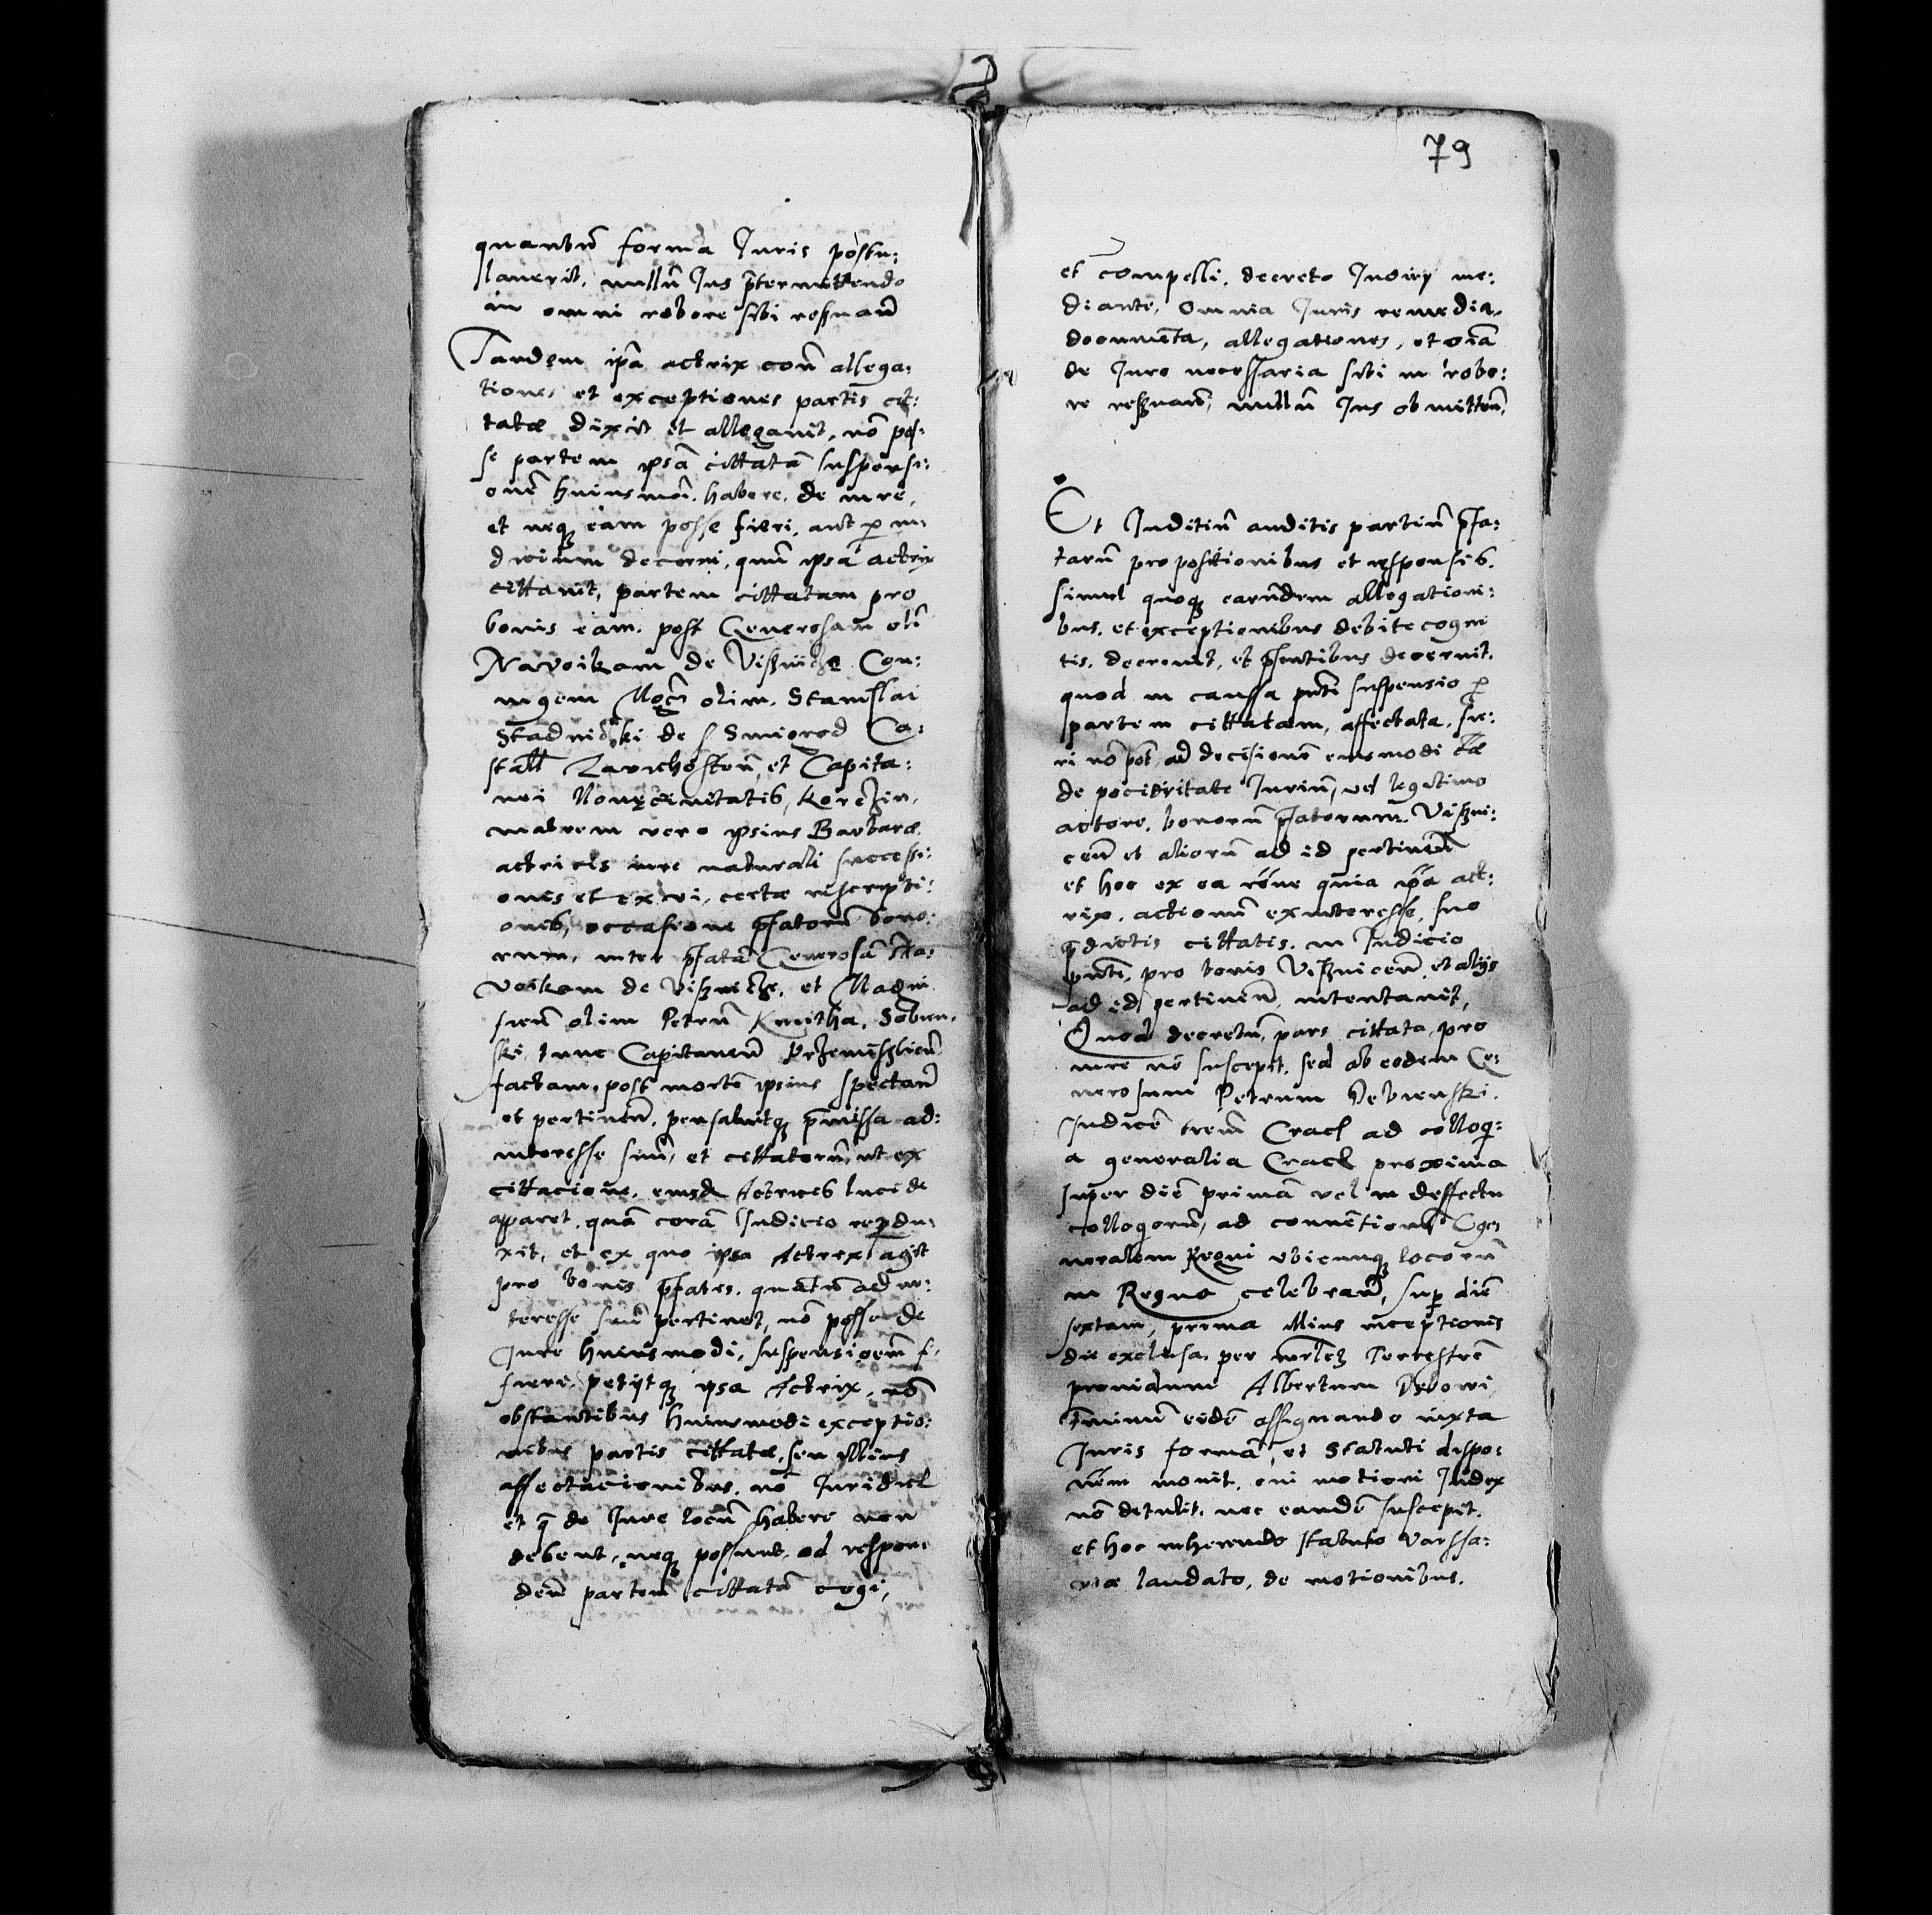 quantũ forma Juris postu:
lauerit, nullũ Jus p̃termittendo
in omni robore sibi reseruan̄
Tandem ip̃a actrix con̄ allega:
tiones et exceptiones partis cit:
tatæ dixit et allegauit, nõ pos:
se partem ipsã cittatã suspensi:
onẽ huiusmõi habere de iure,
et neq₃ eam posse fieri, aut p iu:
dicium decerni, quũ ipsa actrix
cittauit, partem cittatam pro
bonis eam post Generosam oli
Navoikam de Vissnicze Con:
iugem Mgci olim Stanislai
Stadniczki de Smigrod Ca:
stall Zavichosteñ et Capita:
nei Nouęciuitatis, Korczin,
matrem vero ipsius Barbaræ
actricis iure naturali successi:
onis et ex vi certæ inscripti:
onis, occasione p̃fatorũ bono:
rum, inter p̃fatã Generosã Na:
voikam de Vissnicze, et Magni
ficũ olim Petrũ Kmitha, Sobien:
ski tunc Capitaneũ Przemisslien̄
factam, post mortẽ ipsius spectan̄
et pertinen̄, pensatisq₃ p̃missa ad
interesse suũ, et cittatorũ, ut ex
cittacione, eiusdẽ Actricis lucide
apparet, quã corã Judicio repdu:
xit, et ex quo ipsa Actrix agit
pro bonis p̃fatis, quãtũ ad in:
teresse suũ pertinet, nõ posse de
Jure huiusmodi, suspensioem fi:
fieri, petijtq₃ ipsa Actrix, nõ
obstantibus huiusmodi exceptio:
nibus partis cittatæ, seu illius
affectacionibus, nõ Juridicł
et q̃ de Jure locũ habere non
debent, neq₃ possunt, ad respon:
den̄ partem cittatã cogi,
79
et compelli, decreto Judicij me:
diante, Omnia Juris remedia,
documẽta, allegationes, et oĩa
de Jure necessaria sibi in robo:
re reseruan̄, nullũ Jus obmitten̄,
Et Juditiũ auditis partiũ p̃fa:
tarũ propositionibus et responsis,
simul quoq₃ earũdem allegationi:
bus, et exceptionibus debite cogni
tis, decreuit, et p̃sentibus decernit,
quod in causa pñti suspensio p
partem cittatam, affectata, fie:
ri nõ pot̃, ad decisionẽ eiusmodi cæ
de pocioritate Juriũ, vel legitimo
actore, bonorũ p̃fatorum Vissni:
cen̄ et aliorũ ad id pertinen̄
et hoc ex ea rõne quia ip̃a act:
rix, actionũ ex interesse suo
p̃dictis cittatis, in Judicio
pñti, pro bonis Vissnicen̄ et alijs
ad id pertinen̄ intentauit,
Quod decretũ, pars cittata, pro
iure nõ suscepit, sed ab eodem Ge:
nerosum Petrum Debienski
Judicẽ trem̄ Cracł ad colloq:
a generalia Cracł proxima
super diẽ primã vel in deffectu
colloqorũ, ad conuẽtionẽ Ge:
neralem Regni vbicunq₃ locorũ
in Regno celebran̄, sup diẽ
sextam, prima illius inceptionis
die exclusa, per mrlẽ Terrestrẽ
prouidum Albertum Debowi
t̃minũ eidẽ assignando iuxta
Juris formã, et Statuti dispo:
nẽm mouit, cui motioni Judex
nõ detulit, nec eandẽ suscepit,
et hoc inherendo statuto Varssa:
viæ laudato, de motionibus.